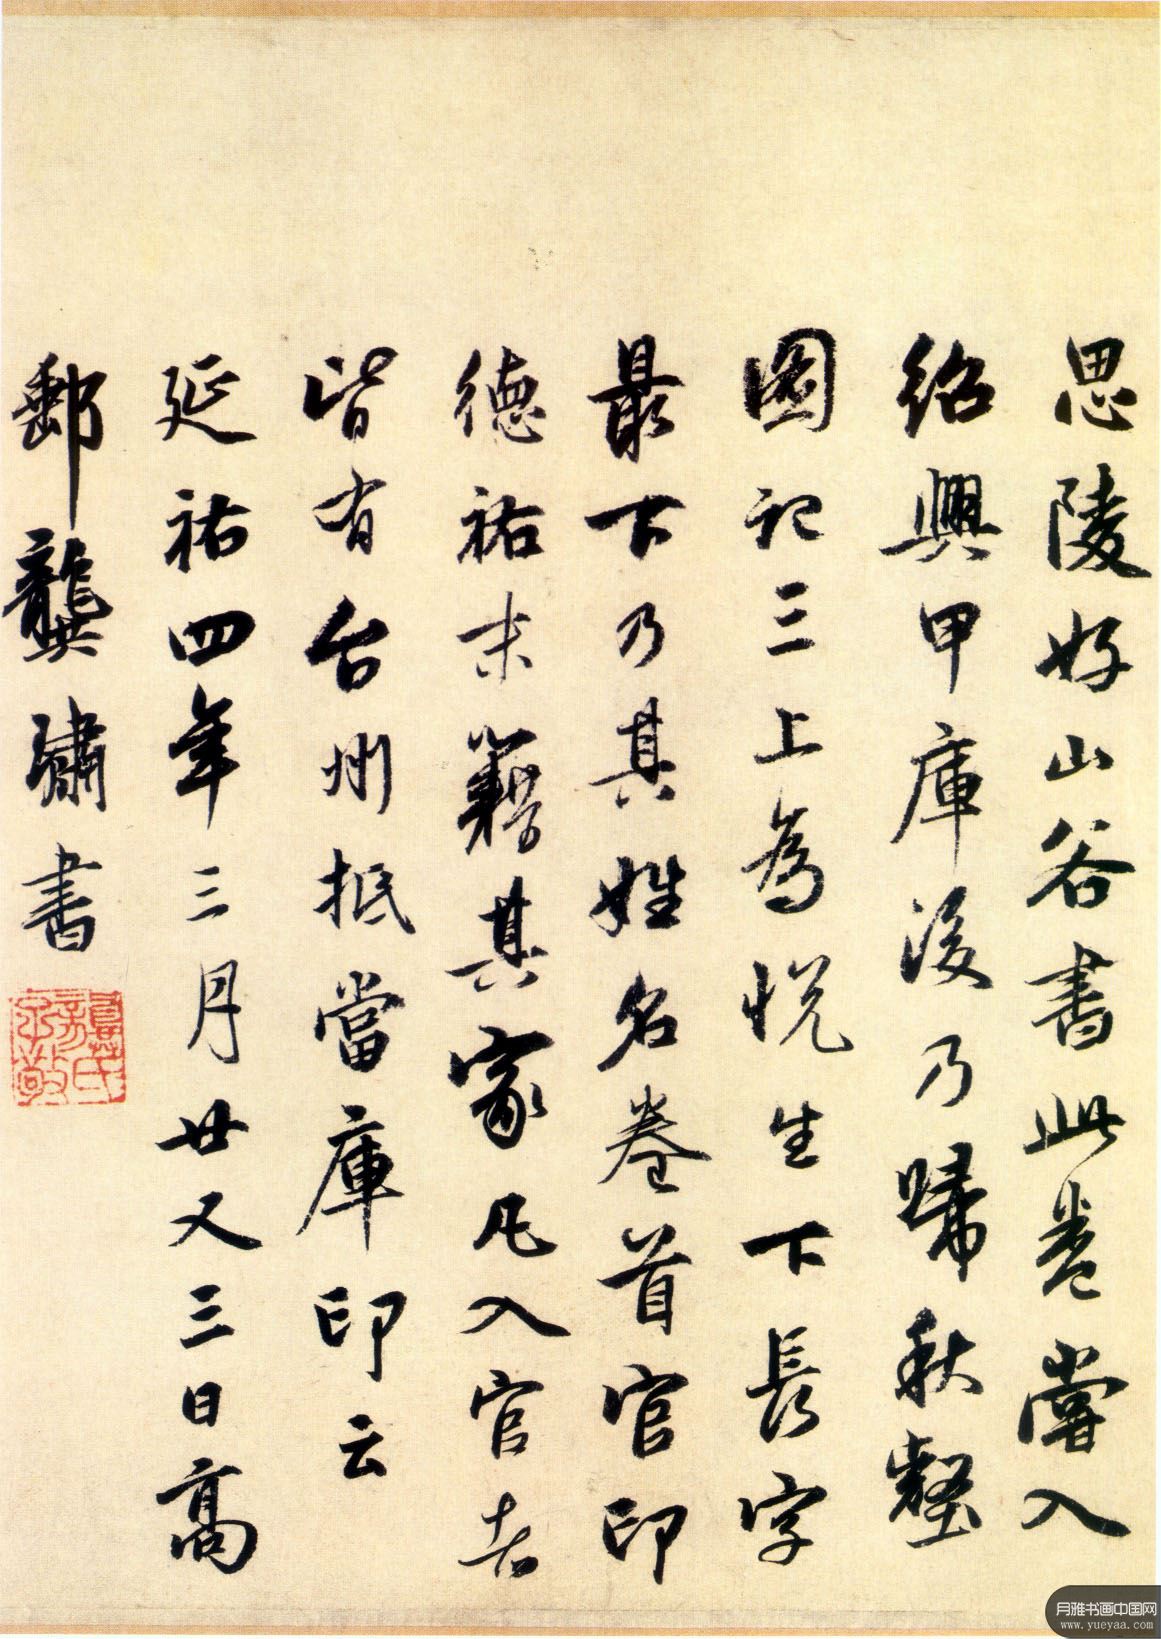 思陵好山谷書此卷嘗入
紹興甲庫後乃歸秋壑
圖記三上為悅生下長字
最下乃其姓名卷首官印
德祐末籍其家凡入官者
皆有台州抵當庫印云
延祐四年三月廿又三日高
郵龔璛書
龔氏子敬
月雅书画中国网
www.yueyaa.com